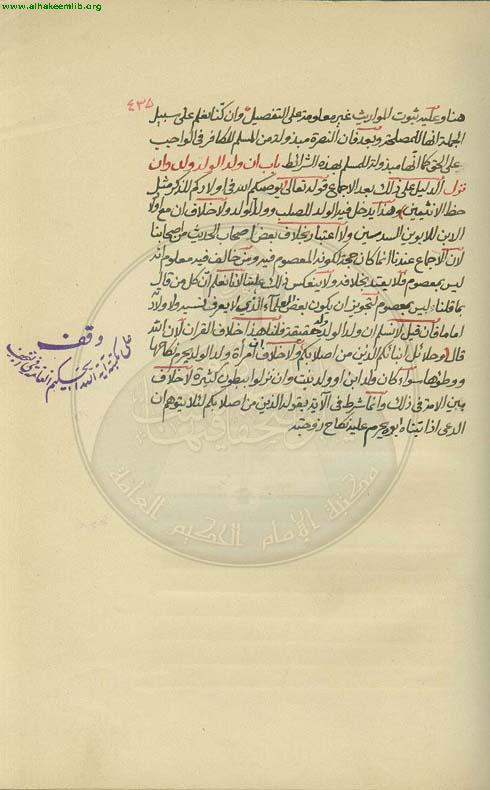 www.alhakeemlib.org
٤٣٥
هنا وعليه ثبوت المواريث غير معلومة على التفصيل وان كنا نعلم على سبيل
الجملة انها للمصلحة وبعد فان النصرة مبذولة من المسلم للكافر في الواجب
على الحق كما انها مبذولة للمسلم بهذه الشرائط باب ان ولد الولد ولد وان
نزل الدليل على ذلك بعد الاجماع قوله تعالى يوصيكم الله في اولادكم للذكر مثل
حظ الانثيين وهذا يدخل فيه الولد للصلب وولد الولد ولا خلاف ان مع اولاد
الابن للابوين السدسين ولا اعتبار بخلاف بعض اصحاب الحديث من اصحابنا
لان الاجماع عندنا انما كان حجة لكون المعصوم فيه ومن خالف فيه معلوم انه
ليس بمعصوم فلا يعتد بخلافه ولا ينعكس ذلك علينا لانا لا نعلم ان كل من قال
بما قلناه ليس بمعصوم لتجويز ان يكون بعض العلماء الذي لا يعرف نسبه ولا ولادته
اماما فان قيل الاسم ان ولد الولد ولد حقيقة قلنا هذا خلاف القران لان الله
قال وحلائل ابنائكم الذين من اصلابكم ولا خلاف ان امرأة ولد الولد يحرم نكاحها
ووطئها سواء كان ولد ابن او ولد بنت وان نزلوا ببطون كثيرة لا خلاف
بين الامة في ذلك وانما شرط في الآية بقوله الذين من اصلابكم لئلا يتوهم ان
الدعى اذا تبناه ابوه يحرم عليه نكاح زوجته
وقف
على مكتبة آية الله الحكيم العامة في النجف
مكتبة الإمام الحكيم العامة